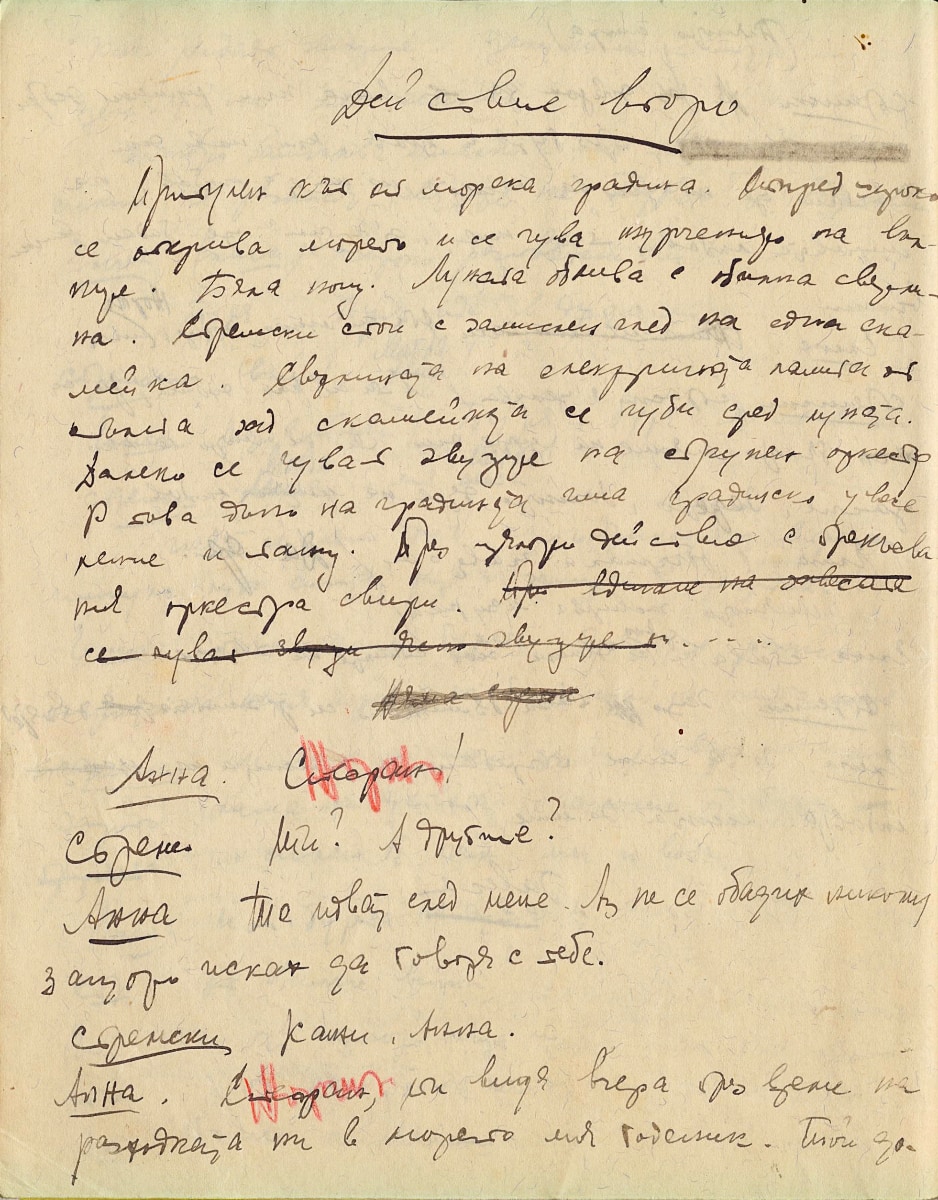 Действие второ
Притулен кът от морска градина. Отпред широко
се открива морето и се чува шурченето на въл-
ните. Бяла нощ. Луната облива с обилна светли-
на. Стремски стои с замислен глед на една ска-
мейка. Светлината на електричната лампа от
стълпа зад скамейката се губи сред луната.
Далеко се чуват звуците на струнен оркестър
В това дъно на градината има градинско увесе
ление и танци. През цялото действие с прекъсва
ния оркестра свири. При вдигане на завесата
се чуват звуци ясно звуците
Анна. Сторан!
Стремс. Ти? А другите?
Анна Те идват след мене. Аз не се обадих никому
защото исках да говоря с тебе.
Стремски Кажи, Анна.
Анна. Сторан, ти видя вчера през време на
разходката ни в морето моя годеник. Той до-